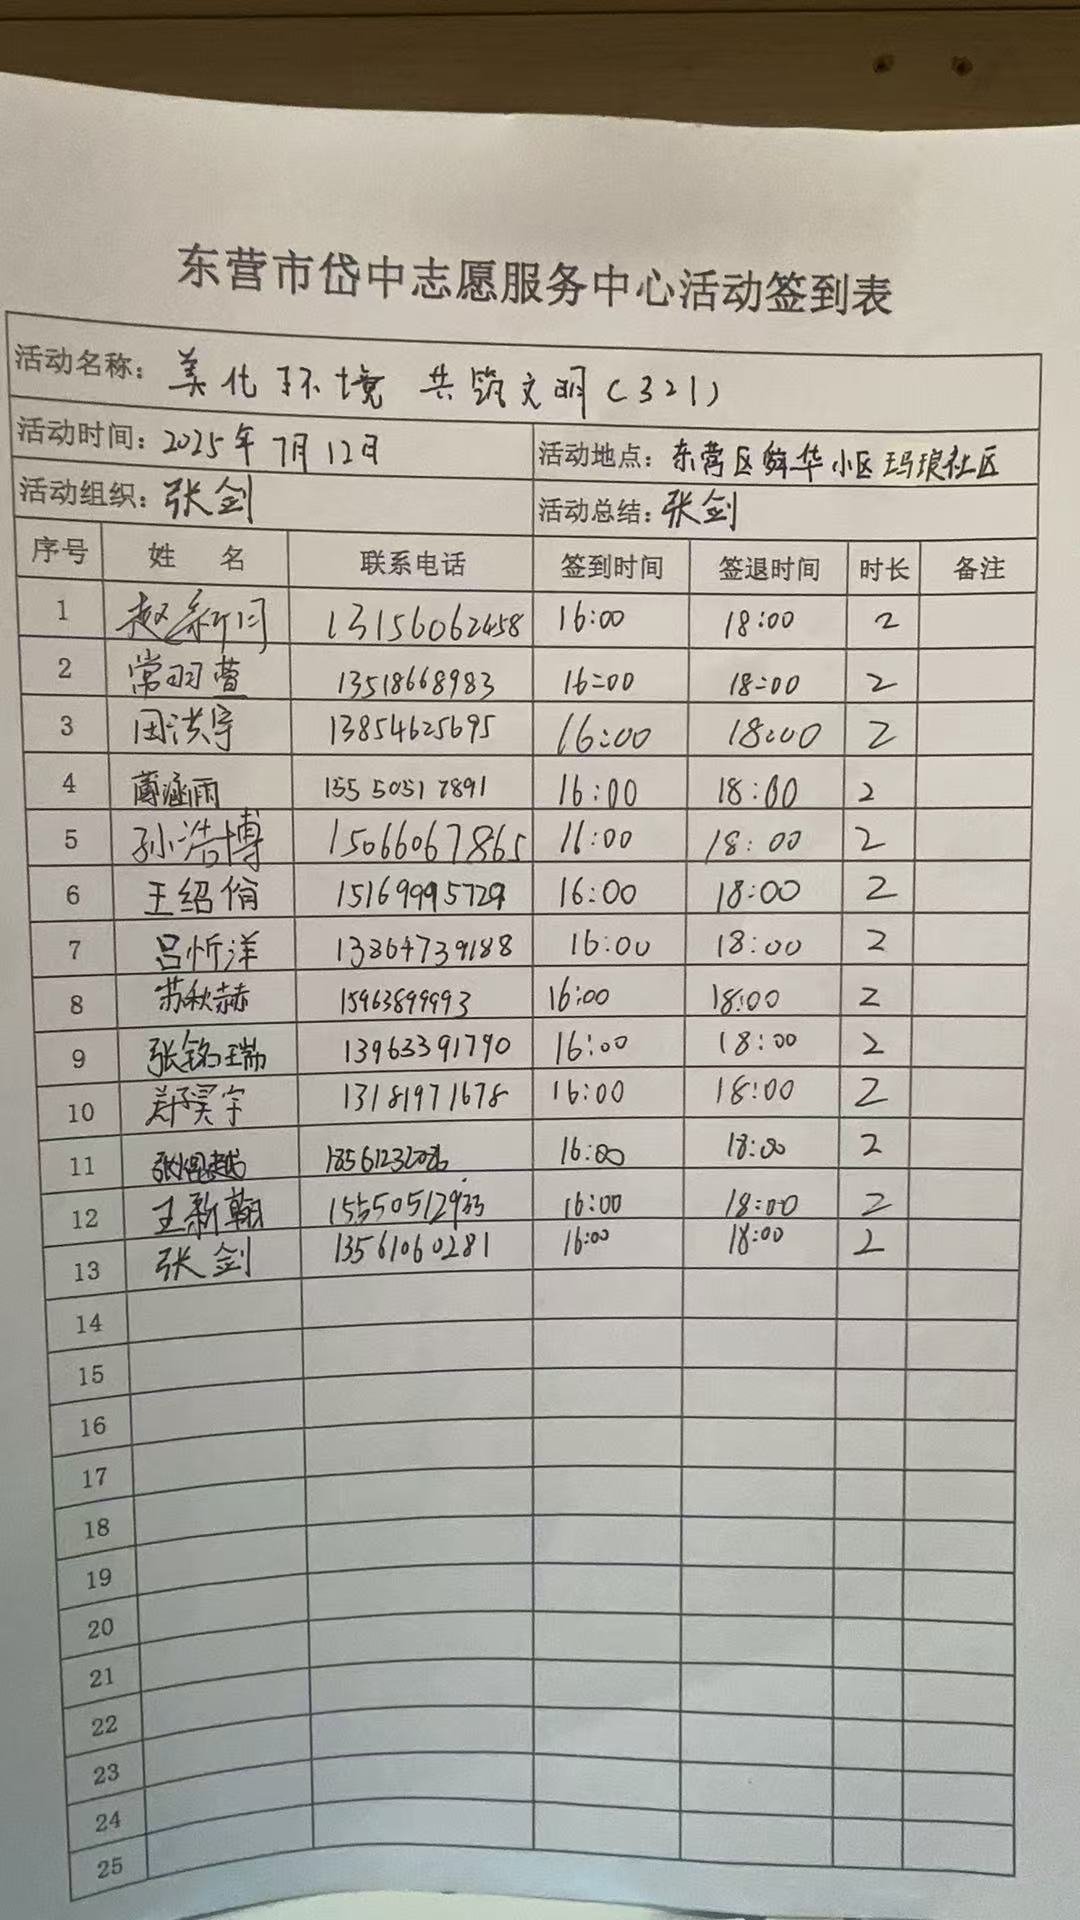 东营市岱中志愿服务中心活动签到表
活动名称: 美化环境 共筑文明(321)
活动时间: 2025年7月12日 活动地点: 东营区舜华小区玛琅社区
活动组织: 张剑 活动总结: 张剑
序号 姓 名 联系电话 签到时间 签退时间 时长 备注
1 13156062458 16:00 18:00 2
2 常羽萱 13518668983 16:00 18:00 2
3 田洪宇 13854625695 16:00 18:00 2
4 16:00 18:00 2
5 孙浩博 15066067865 16:00 18:00 2
6 王绍俏 15169995729 16:00 18:00 2
7 吕忻洋 13364739188 16:00 18:00 2
8 苏秋赫 15963899993 16:00 18:00 2
9 张铭瑞 13963391790 16:00 18:00 2
10 郑昊宇 13181971678 16:00 18:00 2
11 16:00 18:00 2
12 王新翰 15550512933 16:00 18:00 2
13 张剑 13561060281 16:00 18:00 2
14
15
16
17
18
19
20
21
22
23
24
25